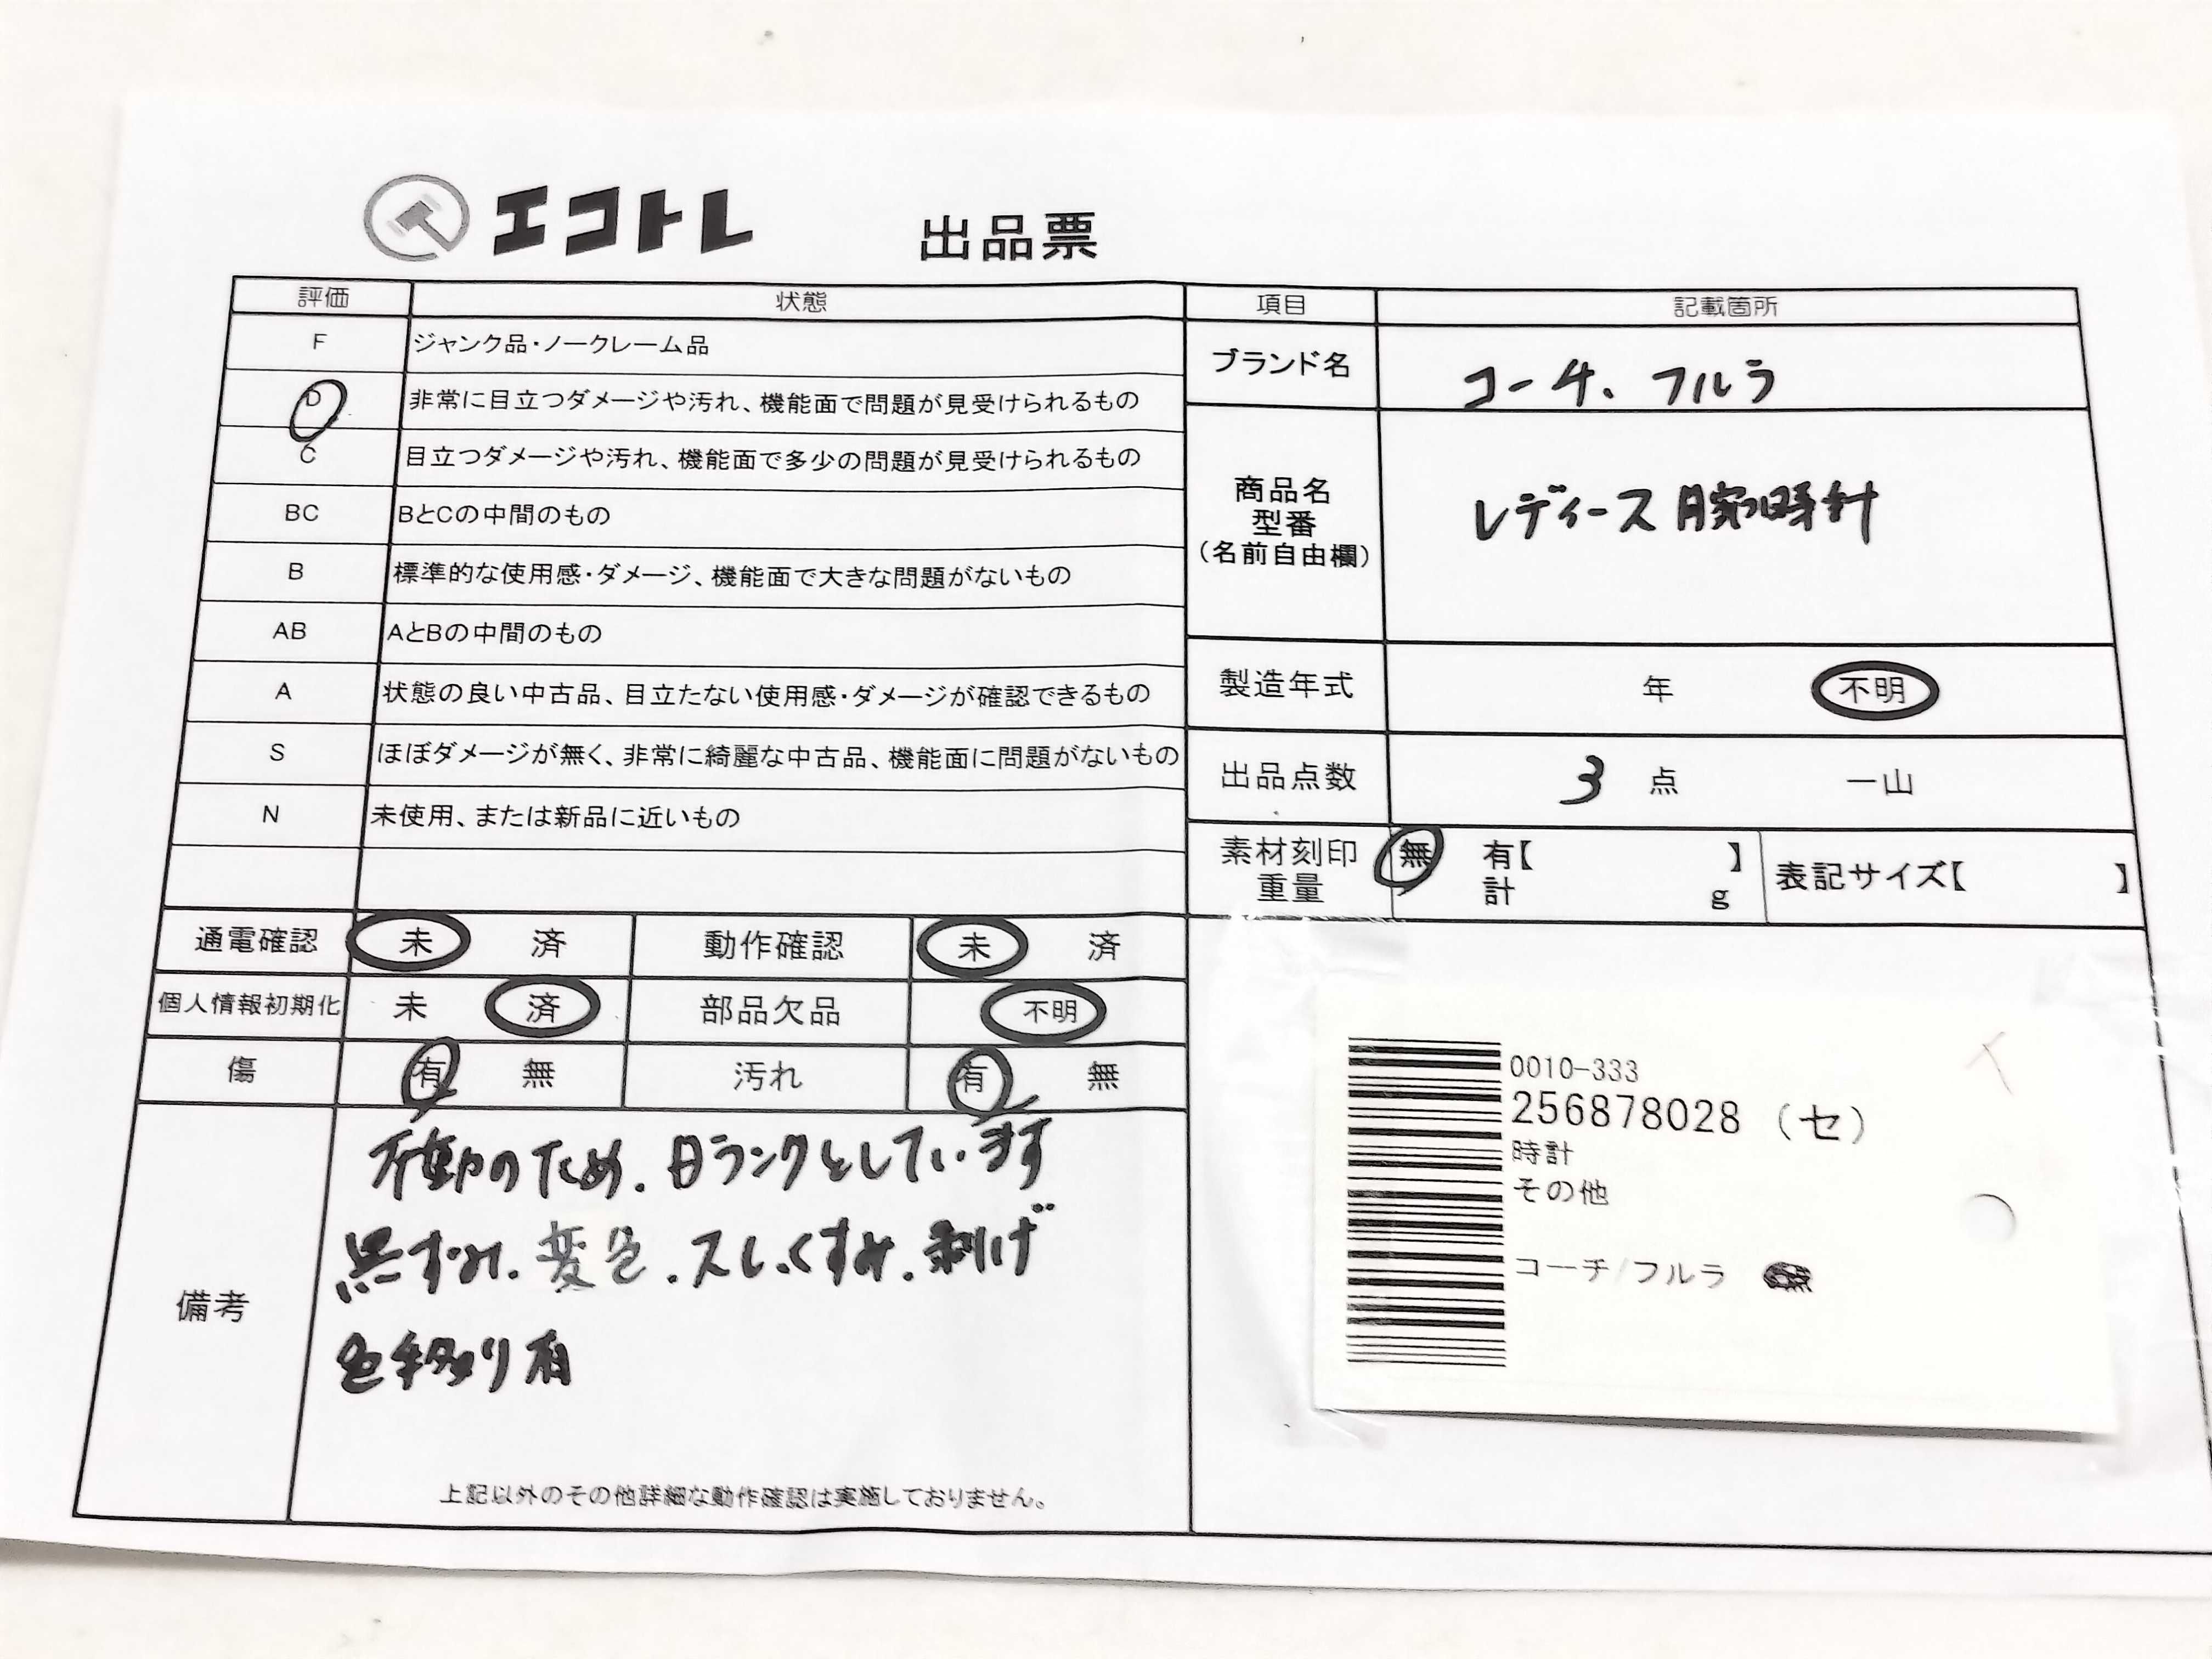 エコトレ 出品票
評価 状態
F ジャンク品・ノークレーム品
D 非常に目立つダメージや汚れ、機能面で問題が見受けられるもの
C 目立つダメージや汚れ、機能面で多少の問題が見受けられるもの
BC BとCの中間のもの
B 標準的な使用感・ダメージ、機能面で大きな問題がないもの
AB AとBの中間のもの
A 状態の良い中古品、目立たない使用感・ダメージが確認できるもの
S ほぼダメージが無く、非常に綺麗な中古品、機能面に問題がないもの
N 未使用、または新品に近いもの
通電確認 未 済 動作確認 未 済
個人情報初期化 未 済 部品欠品 不明
傷 有 無 汚れ 有 無
備考
不動のため、Dランクとしています
黒ずみ、変色、スレ、くすみ、剥げ
色移り有
上記以外のその他詳細な動作確認は実施しておりません。
項目 記載箇所
ブランド名 コーチ、フルラ
商品名
型番
(名前自由欄)
レディース腕時計
製造年式 年 不明
出品点数 3 点 一山
素材刻印 無 有【 】
重量 計 g
表記サイズ【 】
0010-333
256878028 (セ)
時計
その他
コーチ/フルラ